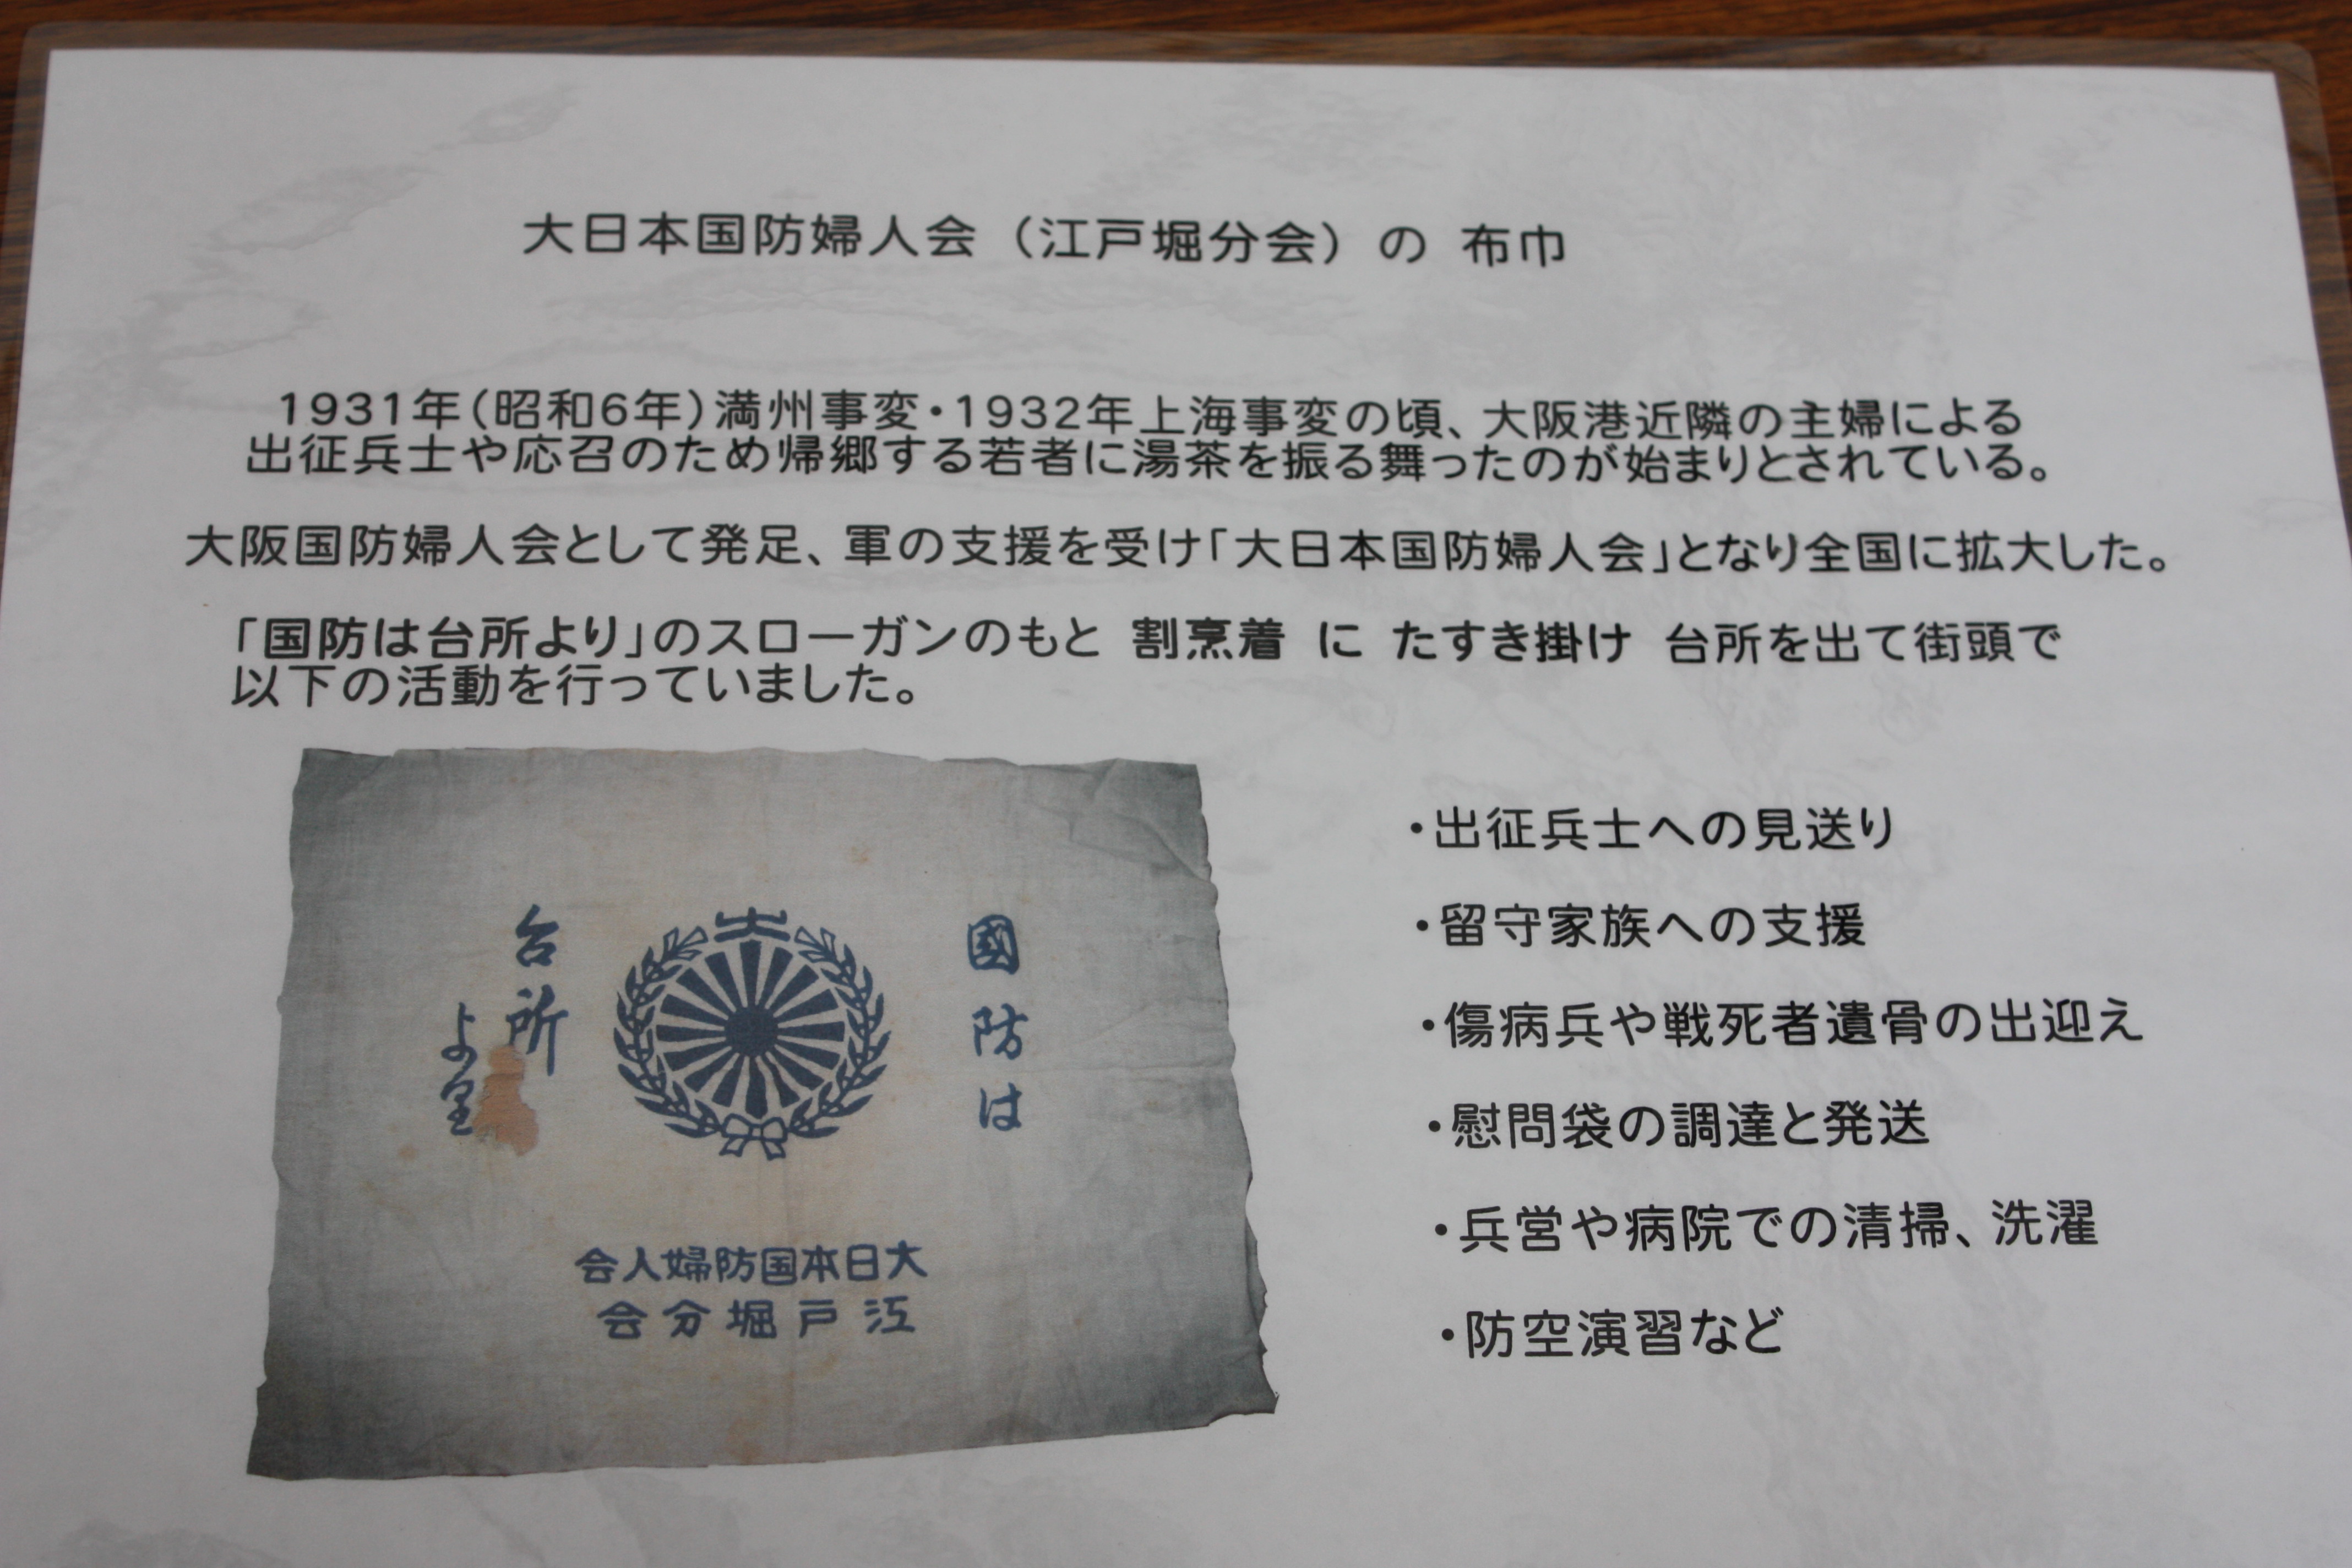 大日本国防婦人会（江戸堀分会）の 布巾
1931年（昭和6年）満州事変・1932年上海事変の頃、大阪港近隣の主婦による
出征兵士や応召のため帰郷する若者に湯茶を振る舞ったのが始まりとされている。
大阪国防婦人会として発足、軍の支援を受け「大日本国防婦人会」となり全国に拡大した。
「国防は台所より」のスローガンのもと 割烹着 に たすき掛け 台所を出て街頭で
以下の活動を行っていました。
國防は
台所
よ里
会人婦防国本日大
会分堀戸江
・出征兵士への見送り
・留守家族への支援
・傷病兵や戦死者遺骨の出迎え
・慰問袋の調達と発送
・兵営や病院での清掃、洗濯
・防空演習など